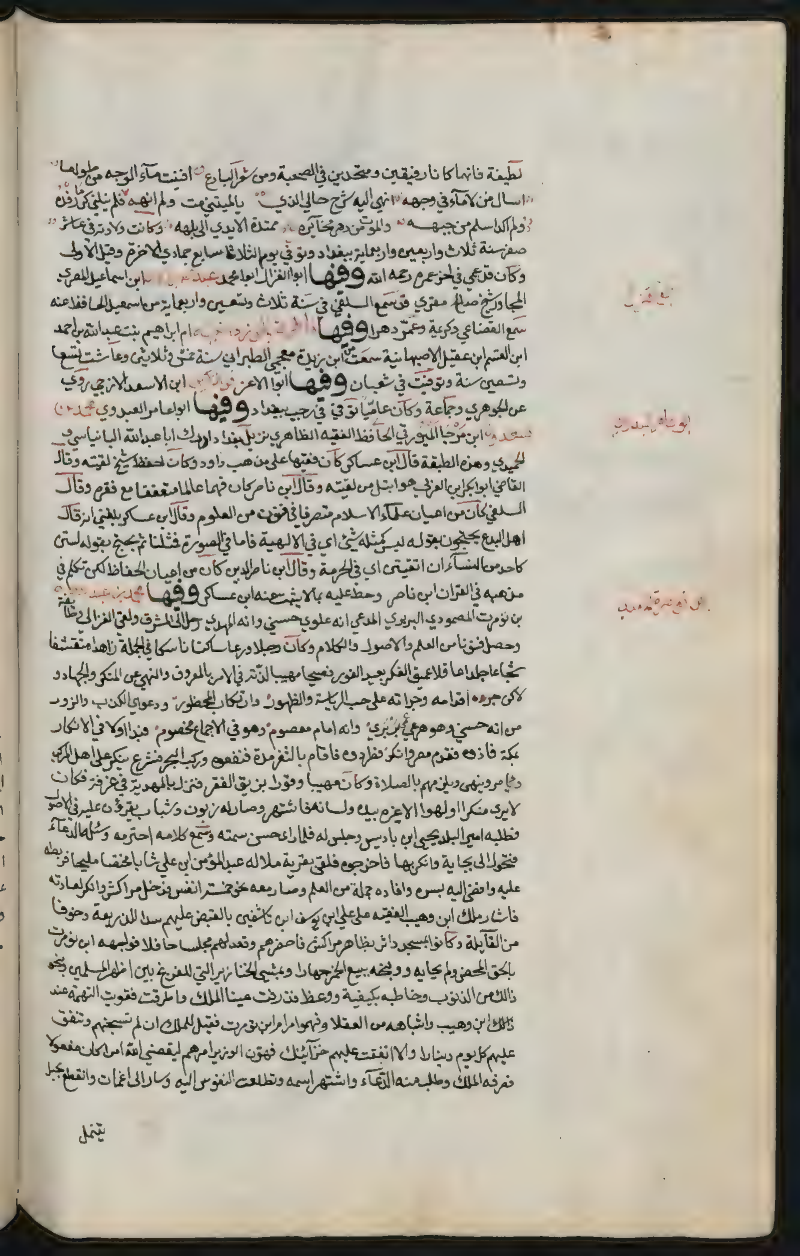 لطيفة فانهما كانا رفيقين ومتحدين في الصحبة ومن شعر البارع افنيت ماء الوجه من طول ما
اسال من لا ماء في وجهه انهي اليه شرح حالي الذي يا ليتني مت ولم انهه فلم ينلني كرما رفده
ولم اكد اسلم من جبهه والموت من دهر نحاريره ممتدة الايدي الى بلهه وكانت ولادته في عاشر
صفر سنة ثلاث واربعين واربعماية ببغداد وتوفي يوم الثلاثا سابع جمادي الاخرة وقيل الاولى
وكان قد عمي في اخر عمره رحمه الله وفيها ابوا الغزال ابوا محمد عبد الله ابن اسماعيل المصري
المجاور شيخ صالح مقري قد سمع السلفي في سنة ثلاث وتسعين واربعماية من اسمعيل الحافظ عنه
سمع القضاعي وكريمة وعمر دهرا وفيها فاطمة الجوزدانية ام ابراهيم بنت عبد الله بن احمد
ابن القسم ابن عقيل الاصبهانية سمعت من ابن ريذة معجمي الطبراني سنة خمس وثلاثين وعاشت تسعا
وتسعين سنة وتوفيت في شعبان وفيها ابوا الاعز قراتكين ابن الاسعد الازجي روي
عن الجوهري وجماعة وكان عاميا توفي في رجب ببغداد وفيها ابوا عامر العبدوي محمد بن
سعدون ابن مرجا الميورقي الحافظ الفقيه الظاهري نزيل بغداد ادرك ابا عبد الله البانياسي و
الحميدي وهذه الطبقة قال ابن عساكر كان فقيها على مذهب داود وكان احفظ شيخ لقيته وقال
القاضي ابوا بكر ابن العربي هو انبل من لقيته وقال ابن ناصر كان فهما عالما متعففا مع فقره وقال
السلفي كان من اعيان علماء الاسلام متصرفا في فنون من العلوم وقال ابن عساكر بلغني انه قال
اهل البدع يحتجون بقوله ليس كمثله شيء اي في الالهية فاما في الصورة فمثلنا ثم يحتج بقوله لستن
كاحد من النساء ان اتقيتن اي في الحرمة وقال ابن ناصر الدين كان من اعيان الحفاظ لكن تكلم في
مذهبه في القران ابن ناصر وحط عليه بالا يثبت عنه ابن عساكر وفيها محمد بن عبد الله
بن تومرت المصمودي البربري المدعي انه علوي حسني وانه المهدي رحل الى المشرق ولقي الغزالي وطائفة
وحصل فنونا من العلم والاصول والكلام وكان رجلا ورعا ساكتا ناسكا في الجملة زاهدا متقشفا
شجاعا جلدا عاقلا عميق الفكر بعيد الغور فصيحا مهيبا لذته في الامر بالمعروف والنهي عن المنكر والجهاد و
لاكن جره اقدامه وجراته على حب الرياسة والظهور وارتكاب المحظور ودعوي الكذب والزور
من انه حسني وهو هرغي بربري وانه امام معصوم وهو في الاجماع مخصوم فبدا اولا في الانكار
بمكة فاذوه فقدم مصر وانكر فطردوه فاقام بالثغر مدة فنفوه وركب البحر فشرع ينكر على اهل المركب
ويامر وينهي ويلزمهم بالصلاة وكان مهيبا وقورا بزيق الفقر فنزل بالمهدية في غرفة فكان
لا يري منكرا او لهوا الا غيره بيده ولسانه فاشتهر وصار له زبون وشباب يقرؤن عليه في الاصول
فطلبه امير البلد يحيي ابن باديس وجلس له فلما راى حسن سمته وسمع كلامه احترمه وساله الدعاء
فتحول الى بجاية وانكر بها فاخرجوه فلقي بقرية ملالة عبد المؤمن ابن علي شابا مختطا مليحا فربطه
عليه وافضي اليه بسره وافاده جملة من العلم وصار معه نحو خمسة انفس فدخل مراكش وانكر لعادته
فاشار ملك ابن وهيب الفقيه على علي ابن يوسف ابن تاشفين بالقبض عليهم سدا للذريعة وخوفا
من القايلة وكانوا بمسجد داثر بظاهر مراكش فاحضرهم وعقد لهم مجلسا حافلا فواجهه ابن تومرت
بالحق المحض ولم يحابه ووبخه ببيع الخمر جهارا وبمشي الخنازير التي للفرنج بين اظهر المسلمين ونحو
ذالك من الذنوب وخاطبه بكيفية ووعظ فذرفت عينا الملك واطرق فقويت التهمة عند
ذالك ابن وهيب واشباهه من العقلا وفهموا مرام ابن تومرت فقيل للملك ان لم تسجنهم وتنفق
عليهم كل يوم دينارا والا انفقت عليهم خزائنك فهون الوزير امرهم ليقضي الله امرا كان مفعولا
فصرفه الملك وطلب منه الدعاء واشتهر اسمه وتطلعت النفوس اليه وسار الى اغمات وانقطع بجبل
تينمل
ابو عامر العبدري